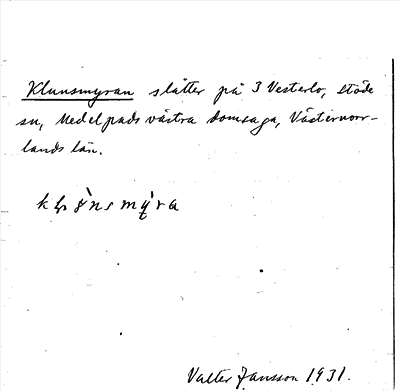 Klunsmyran slåtter på 3 Vesterlo, Stöde
sn, Medelpads västra domsaga, Västernorr-
lands län.
Valter Jansson 1931.